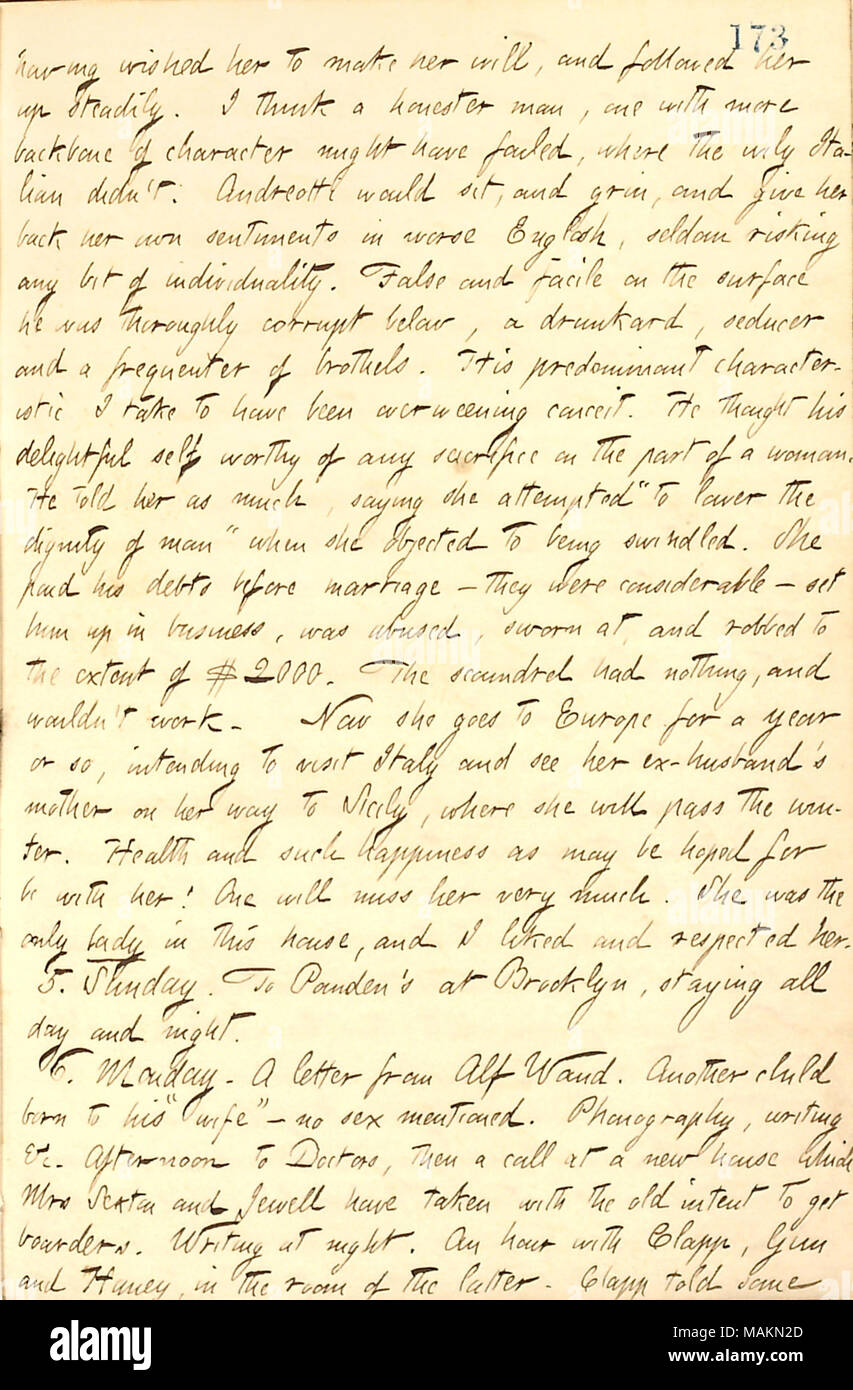 173
having wished her to make her will, and followed her
up steadily. I think a honester man, one with more
backbone of character might have failed, where the wily Ita-
lian didn't. Andreotti would sit, and grin, and give her
back her own sentiments in worse English, seldom risking
any bit of individuality. False and facile on the surface
he was thoroughly corrupt below, a drunkard, seducer
and a frequenter of brothels. His predominant character-
istic I take to have been overweening conceit. He thought his
delightful self worthy of any sacrifice on the part of a woman.
He told her as much, saying she attempted "to lower the
dignity of man" when she objected to being swindled. She
paid his debts before marriage — they were considerable — set
him up in business, was abused, sworn at, and robbed to
the extent of $2000. The scoundrel had nothing, and
wouldn't work. Now she goes to Europe for a year
or so, intending to visit Italy and see her ex-husband's
mother on her way to Sicily, where she will pass the win-
ter. Health and such happiness as may be hoped for
be with her! One will miss her very much. She was the
only lady in this house, and I liked and respected her.
5. Sunday. To Pounden's at Brooklyn, staying all
day and night.
6. Monday. A letter from Alf Waud. Another child
born to his "wife" — no sex mentioned. Phonography, writing
&c. Afternoon to Doctors, then a call at a new house which
Mrs Sexton and Jewell have taken with the old intent to get
boarders. Writing at night. An hour with Clapp, Gun
and Haney, in the room of the latter. Clapp told some
alamy
Image ID: MAKN2D
www.alamy.com